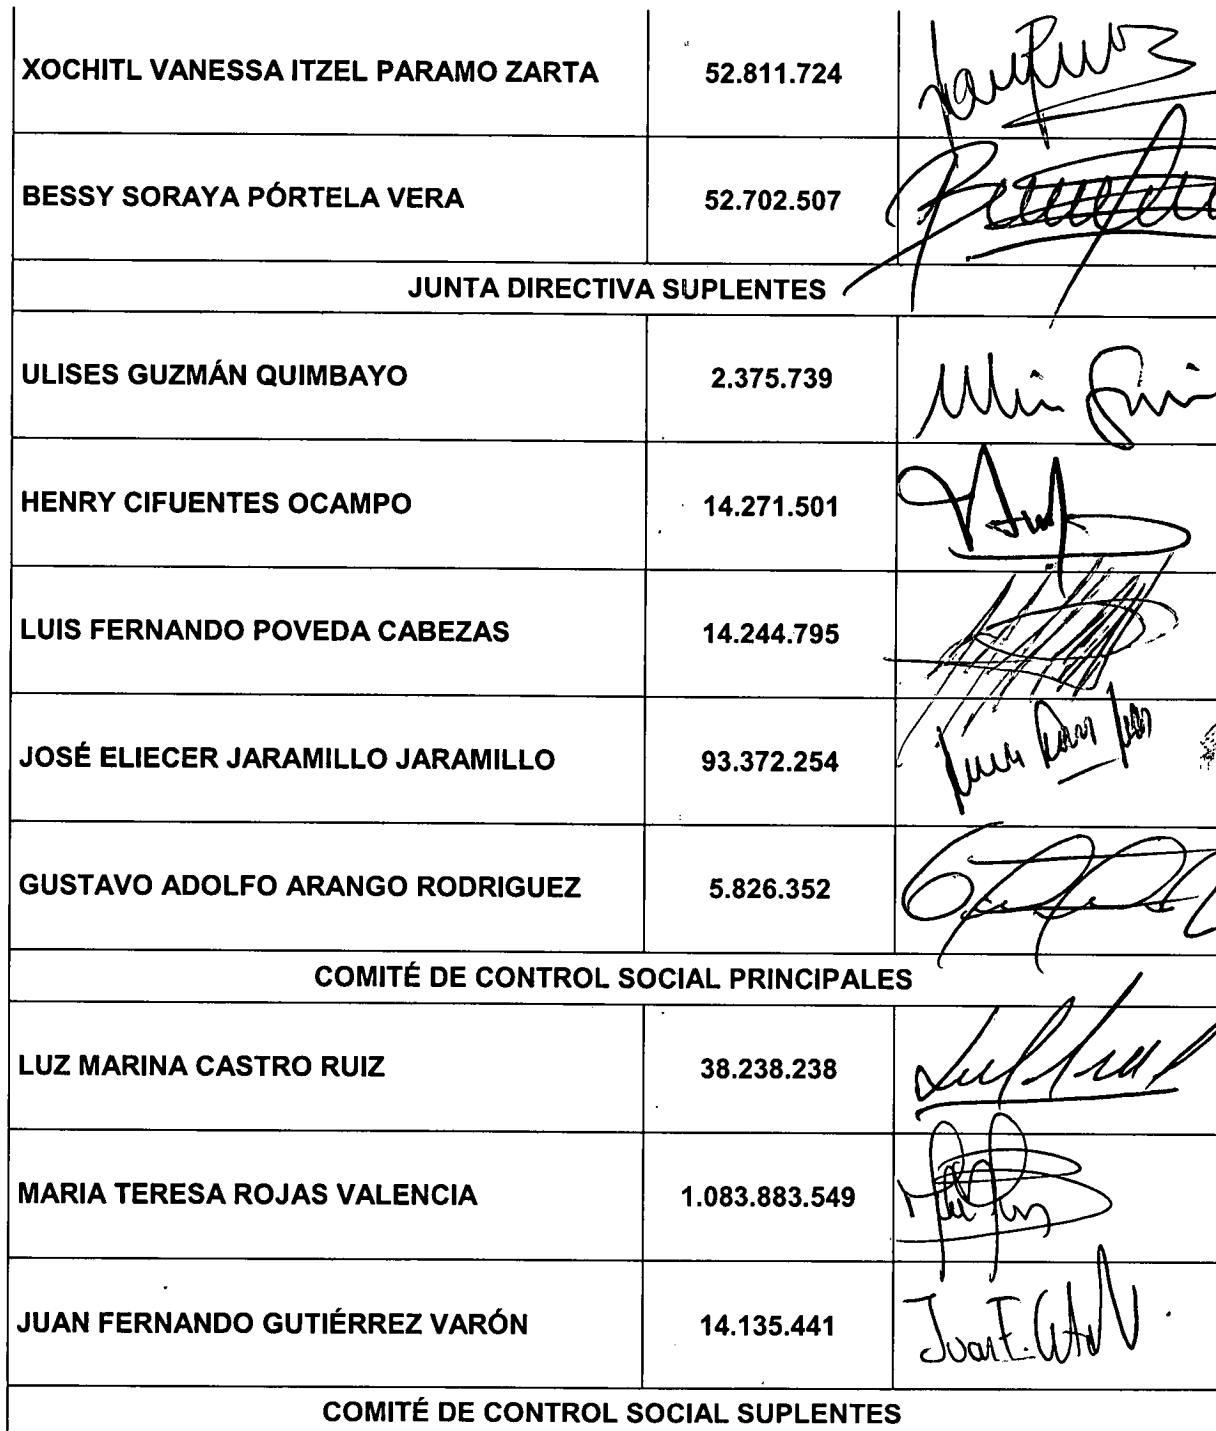 XOCHITL VANESSA ITZEL PARAMO ZARTA 52.811.724
BESSY SORAYA PÓRTELA VERA 52.702.507
JUNTA DIRECTIVA SUPLENTES
ULISES GUZMÁN QUIMBAYO 2.375.739
HENRY CIFUENTES OCAMPO 14.271.501
LUIS FERNANDO POVEDA CABEZAS 14.244.795
JOSÉ ELIECER JARAMILLO JARAMILLO 93.372.254
GUSTAVO ADOLFO ARANGO RODRIGUEZ 5.826.352
COMITÉ DE CONTROL SOCIAL PRINCIPALES
LUZ MARINA CASTRO RUIZ 38.238.238
MARIA TERESA ROJAS VALENCIA 1.083.883.549
JUAN FERNANDO GUTIÉRREZ VARÓN 14.135.441
COMITÉ DE CONTROL SOCIAL SUPLENTES